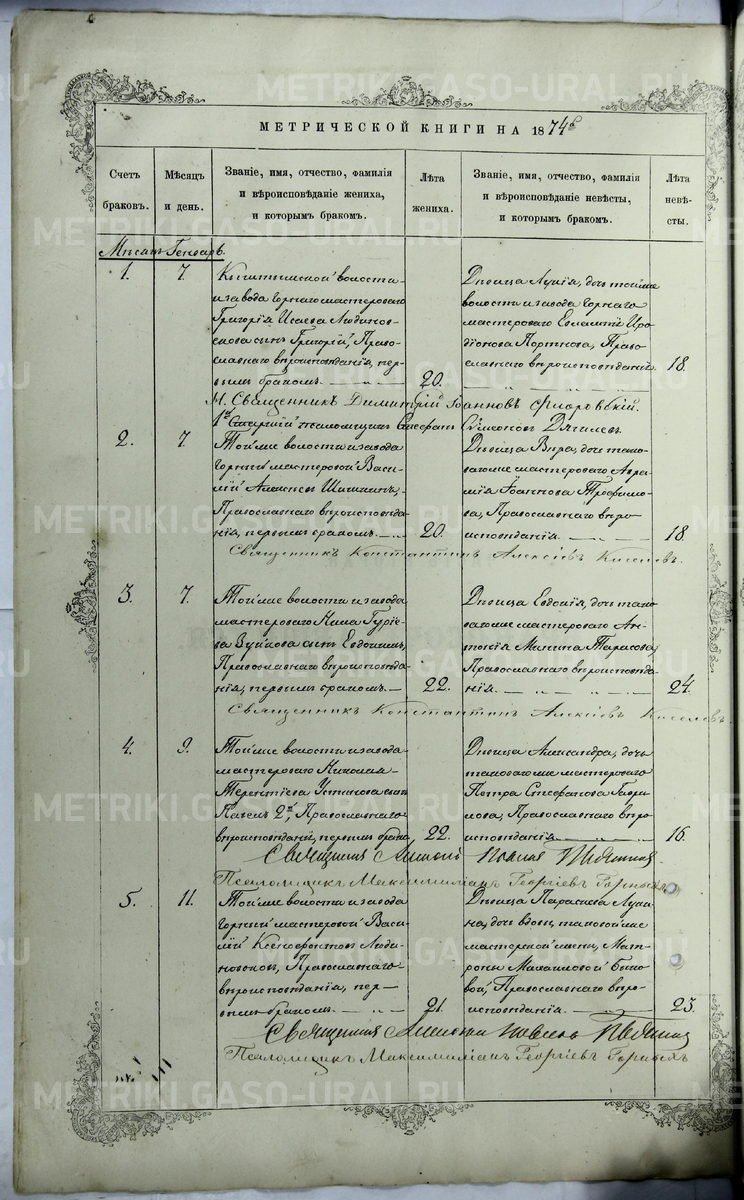 МЕТРИЧЕСКОЙ КНИГИ НА 1874 г
Счетъ браковъ.
Мѣсяцъ и день.
Званіе, имя, отчество, фамилія
и вѣроисповѣданіе жениха,
и которымъ бракомъ.
Лѣта жениха.
Званіе, имя, отчество, фамилія
и вѣроисповѣданіе невѣсты,
и которымъ бракомъ.
Лѣта невѣ-
сты.
Мѣсяцъ Генварь.
1. 7.
Кыштымской волости
и завода горнаго мастероваго
Григорія Исаева Людинов-
скова сынъ Григорій, Право-
славнаго вѣроисповѣданія, пер-
вымъ бракомъ. 20.
Дѣвица Лукія, дочь той же
волости и завода горнаго
мастероваго Евлампія Иро-
діонова Портнова, Право-
славнаго вѣроисповѣданія. 18.
М. Священникъ Димитрій Іоанновъ Флоровскій.
Стефанъ Симоновъ Дягилевъ
2. 7.
Той же волости и завода
горный мастеровой Васи-
лій Алексѣевъ Шишкинъ,
Православнаго вѣроисповѣда-
нія, первымъ бракомъ. 20.
Дѣвица Вѣра, дочь тако-
ваго же мастероваго Авра-
мія Іоаннова Трофимо-
ва, Православнаго вѣро-
исповѣданія. 18.
Священникъ Константинъ Алексіевъ Киселевъ.
3. 7.
Той же волости и завода
мастероваго Кина Гуріе-
ва Зуйкова сынъ Евдокимъ,
Православнаго вѣроисповѣда-
нія, первымъ бракомъ. 22.
Дѣвица Евдокія, дочь тако-
ваго же мастероваго Ан-
тонія Минина Тарасова,
Православнаго вѣроисповѣда-
нія. 24.
Священникъ Константинъ Алексіевъ Киселевъ.
4. 9.
Той же волости и завода
мастероваго Николая
Терентіева Устинова сынъ
Павелъ 2й, Православнаго
вѣроисповѣданія, первымъ бракомъ 22.
Дѣвица Александра, дочь
таковаго же мастероваго
Петра Стефанова Гаври-
лова, Православнаго вѣро-
исповѣданія. 16.
Священникъ
Псаломщикъ Максимиліанъ Георгіевъ Горныхъ
5. 11.
Той же волости и завода
горный мастеровой Васи-
лій Ксенофонтовъ Люди-
новсковъ, Православнаго
вѣроисповѣданія, пер-
вымъ бракомъ. 21.
Дѣвица Параскева Луки-
на, дочь вдовы таковой же
мастерской жены, Мат-
роны Михаиловой Быко-
вой, Православнаго вѣро-
исповѣданія. 23.
Священникъ
Псаломщикъ Максимиліанъ Георгіевъ Горныхъ
METRIKI.GASO-URAL.RU